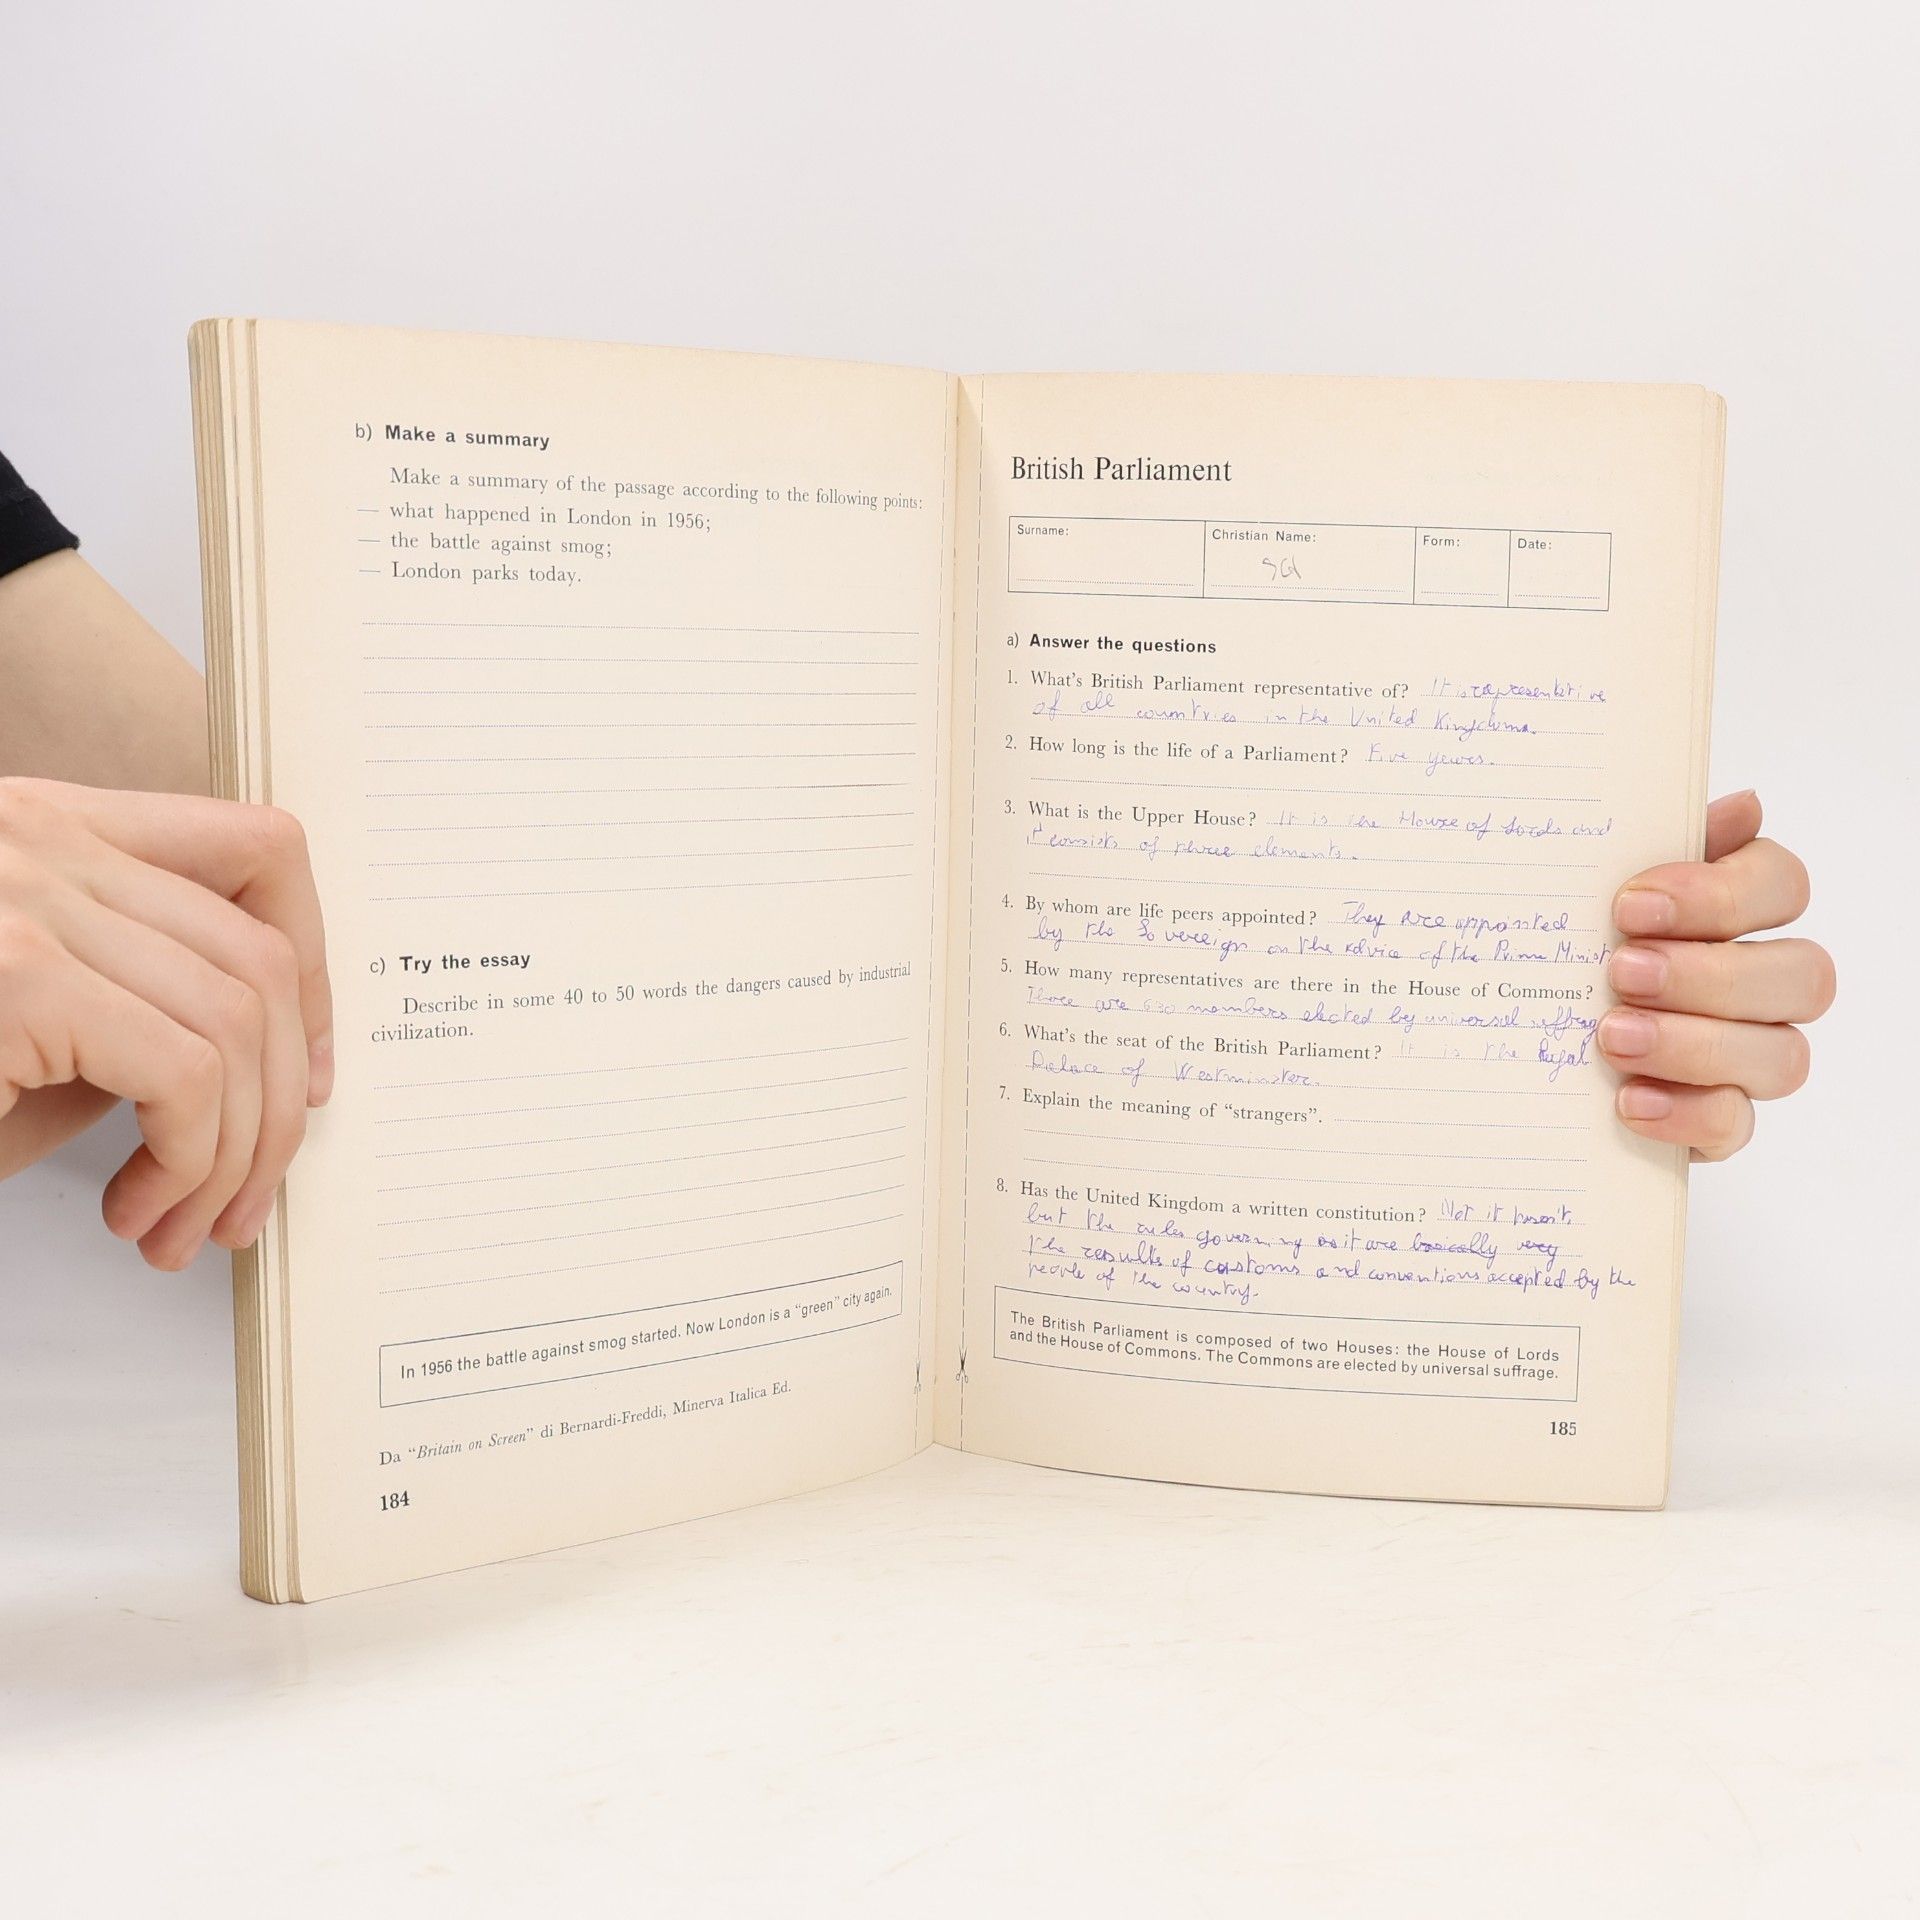 b) Make a summary
Make a summary of the passage according to the following points:
— what happened in London in 1956;
— the battle against smog;
— London parks today.
c) Try the essay
Describe in some 40 to 50 words the dangers caused by industrial
civilization.
In 1956 the battle against smog started. Now London is a "green" city again.
Da "Britain on Screen" di Bernardi-Freddi, Minerva Italica Ed.
184
British Parliament
Surname: Christian Name: Form: Date:
a) Answer the questions
1. What's British Parliament representative of? It is representative
of all countries in the United Kingdoms.
2. How long is the life of a Parliament? Five years.
3. What is the Upper House? It is the House of Lords and
it consists of three elements.
4. By whom are life peers appointed? They are appointed
by the Sovereign on the advice of the Prime Minist
5. How many representatives are there in the House of Commons?
There are 630 members elected by universal suffrag
6. What's the seat of the British Parliament? It is the Royal
Palace of Westminster.
7. Explain the meaning of "strangers".
8. Has the United Kingdom a written constitution? Not it hasn't,
but the rules governing it are basically very
the results of customs and conventions accepted by the
people of the country.
The British Parliament is composed of two Houses: the House of Lords
and the House of Commons. The Commons are elected by universal suffrage.
185